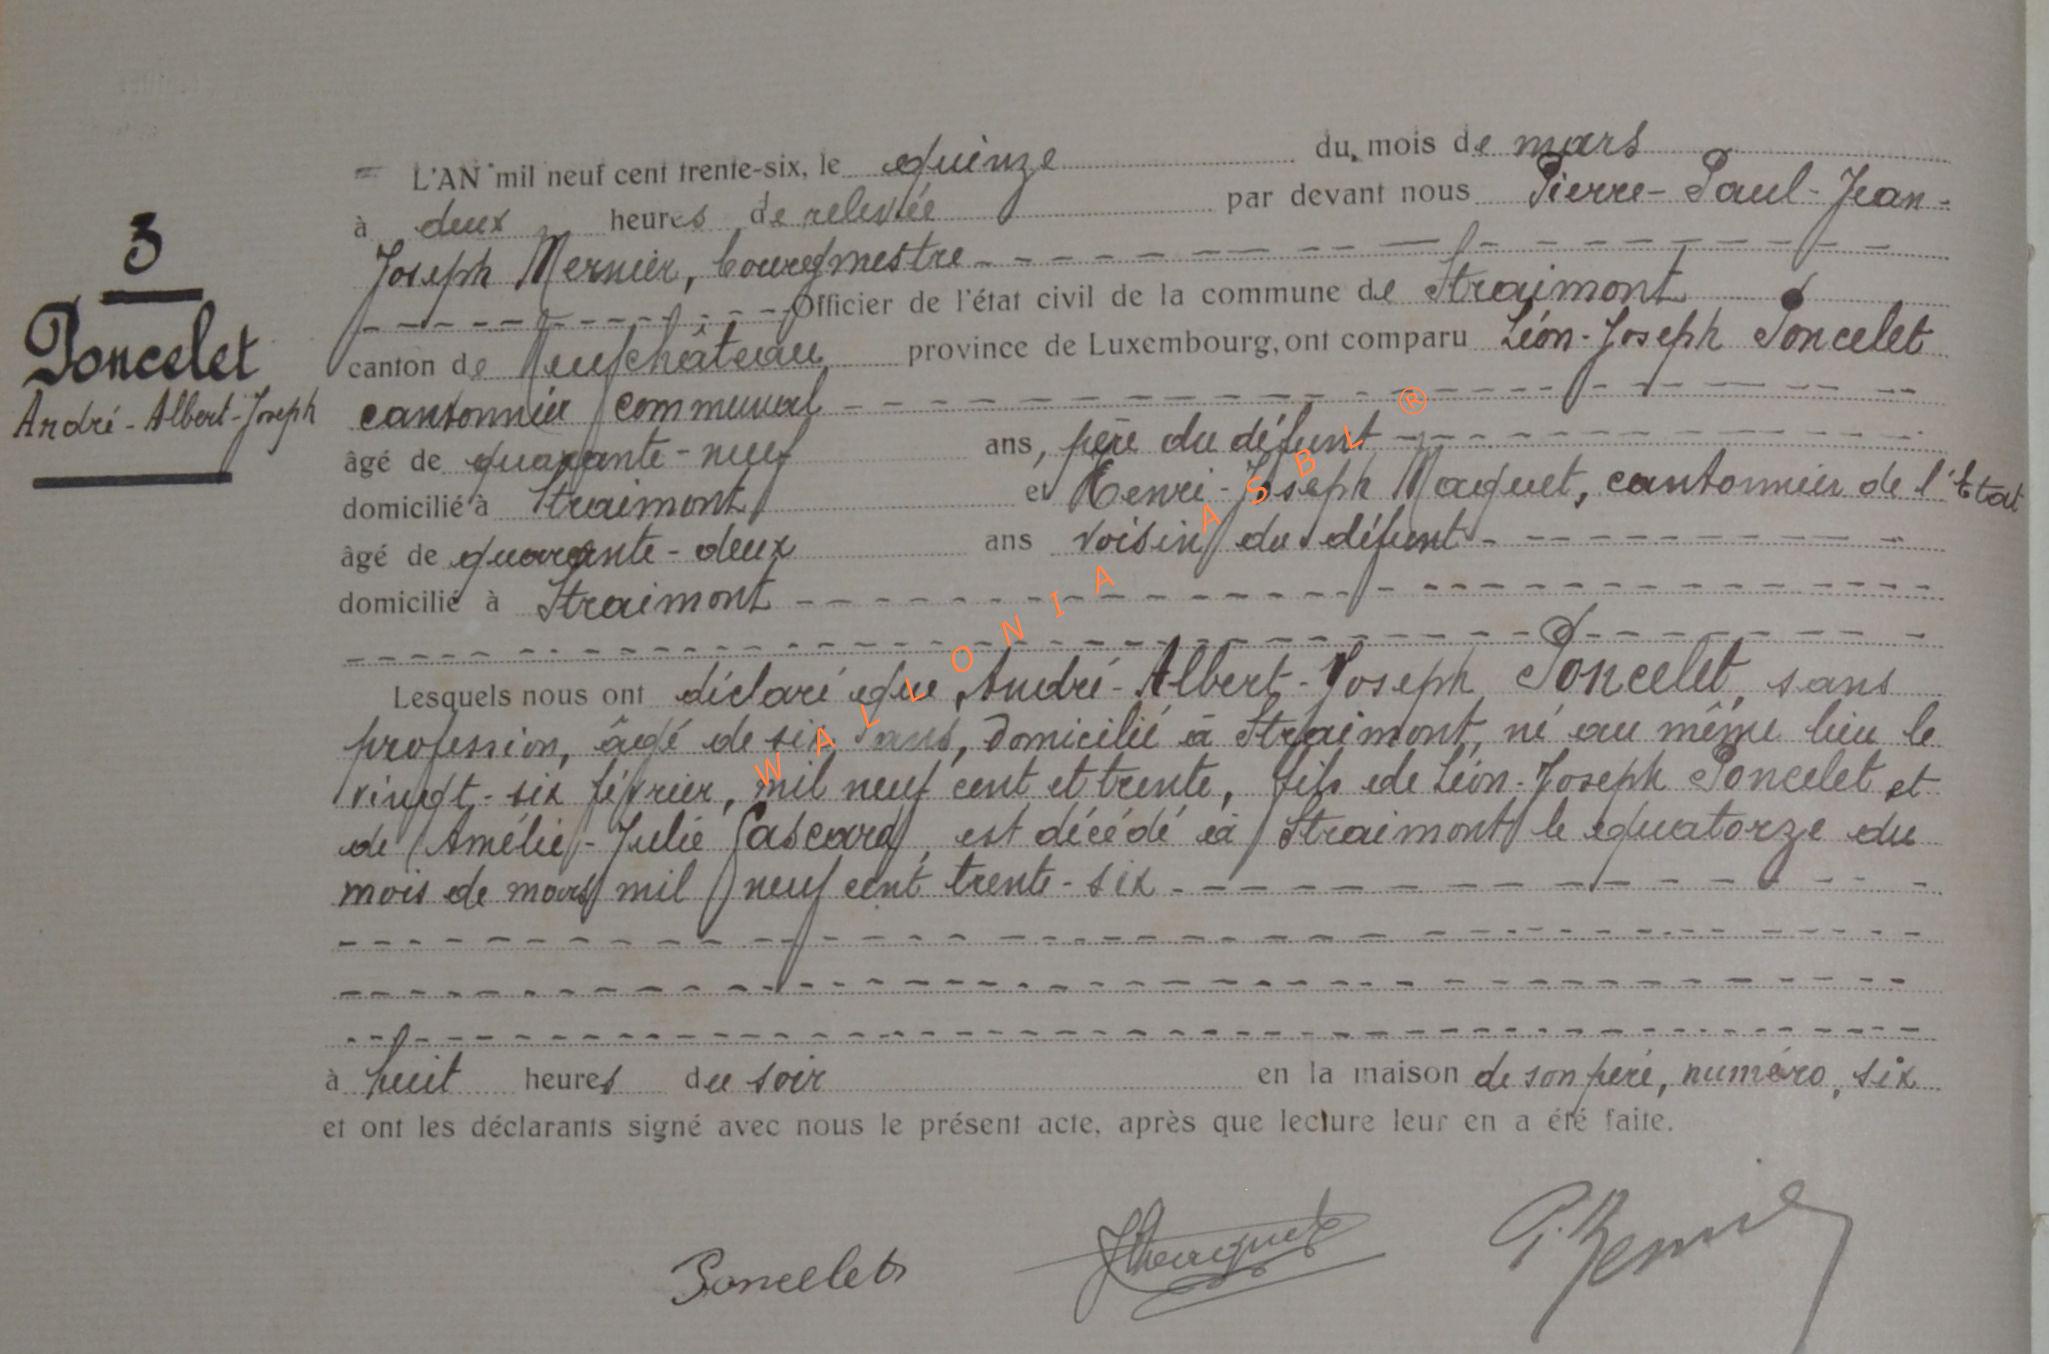 3
Poncelet
André-Albert-Joseph
L'AN mil neuf cent trente-six, le quinze du mois de mars
à deux heures de relevée par devant nous Pierre-Paul-Jean-
Joseph Mernier, bourgmestre
Officier de l'état civil de la commune de Straimont
canton de Neufchâteau province de Luxembourg, ont comparu Léon-Joseph Poncelet
cantonnier communal
âgé de quarante-neuf ans, père du défunt
domicilié à Straimont et Henri-Joseph Maquet, cantonnier de l'Etat
âgé de quarante-deux ans voisin du défunt
domicilié à Straimont
Lesquels nous ont déclaré que André-Albert-Joseph Poncelet, sans
profession, âgé de six ans, domicilié à Straimont, né au même lieu le
vingt-six février, mil neuf cent et trente, fils de Léon-Joseph Poncelet et
de Amélie-Julie Gascard, est décédé à Straimont le quatorze du
mois de mars mil neuf cent trente-six
à huit heures du soir en la maison de son père, numéro, six
et ont les déclarants signé avec nous le présent acte, après que lecture leur en a été faite.
Poncelet JMaquet P. Mernier
WALLONIA ASBL ®